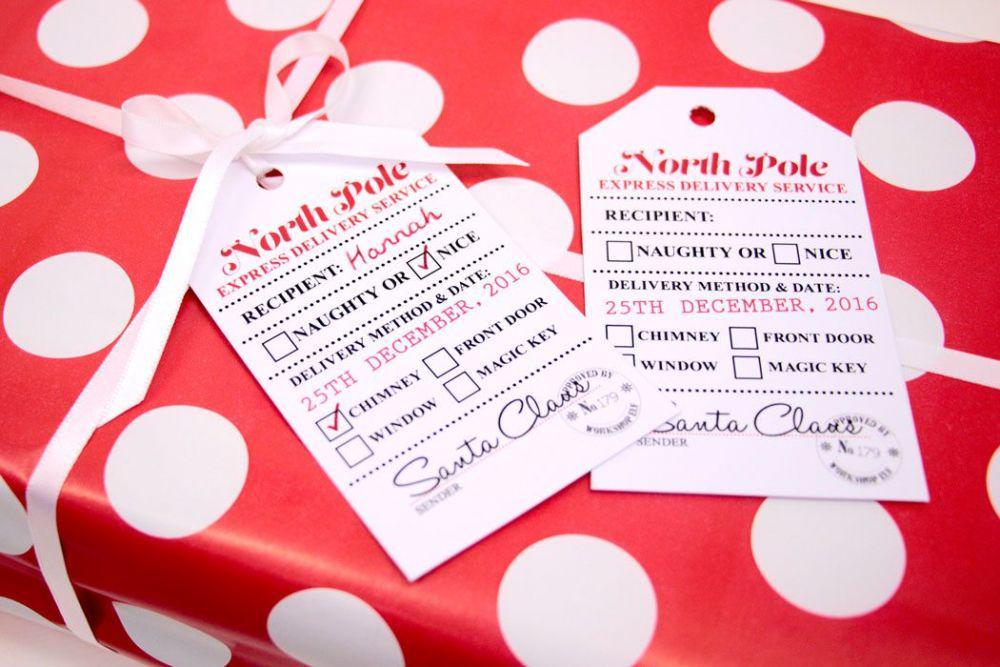 North Pole
EXPRESS DELIVERY SERVICE
RECIPIENT: Hannah
NAUGHTY OR NICE
DELIVERY METHOD & DATE:
25TH DECEMBER, 2016
CHIMNEY FRONT DOOR
WINDOW MAGIC KEY
Santa Claus
SENDER
APPROVED BY
No 179
WORKSHOP ELF
North Pole
EXPRESS DELIVERY SERVICE
RECIPIENT:
NAUGHTY OR NICE
DELIVERY METHOD & DATE:
25TH DECEMBER, 2016
CHIMNEY FRONT DOOR
WINDOW MAGIC KEY
Santa Claus
SENDER
APPROVED BY
No 179
WORKSHOP ELF